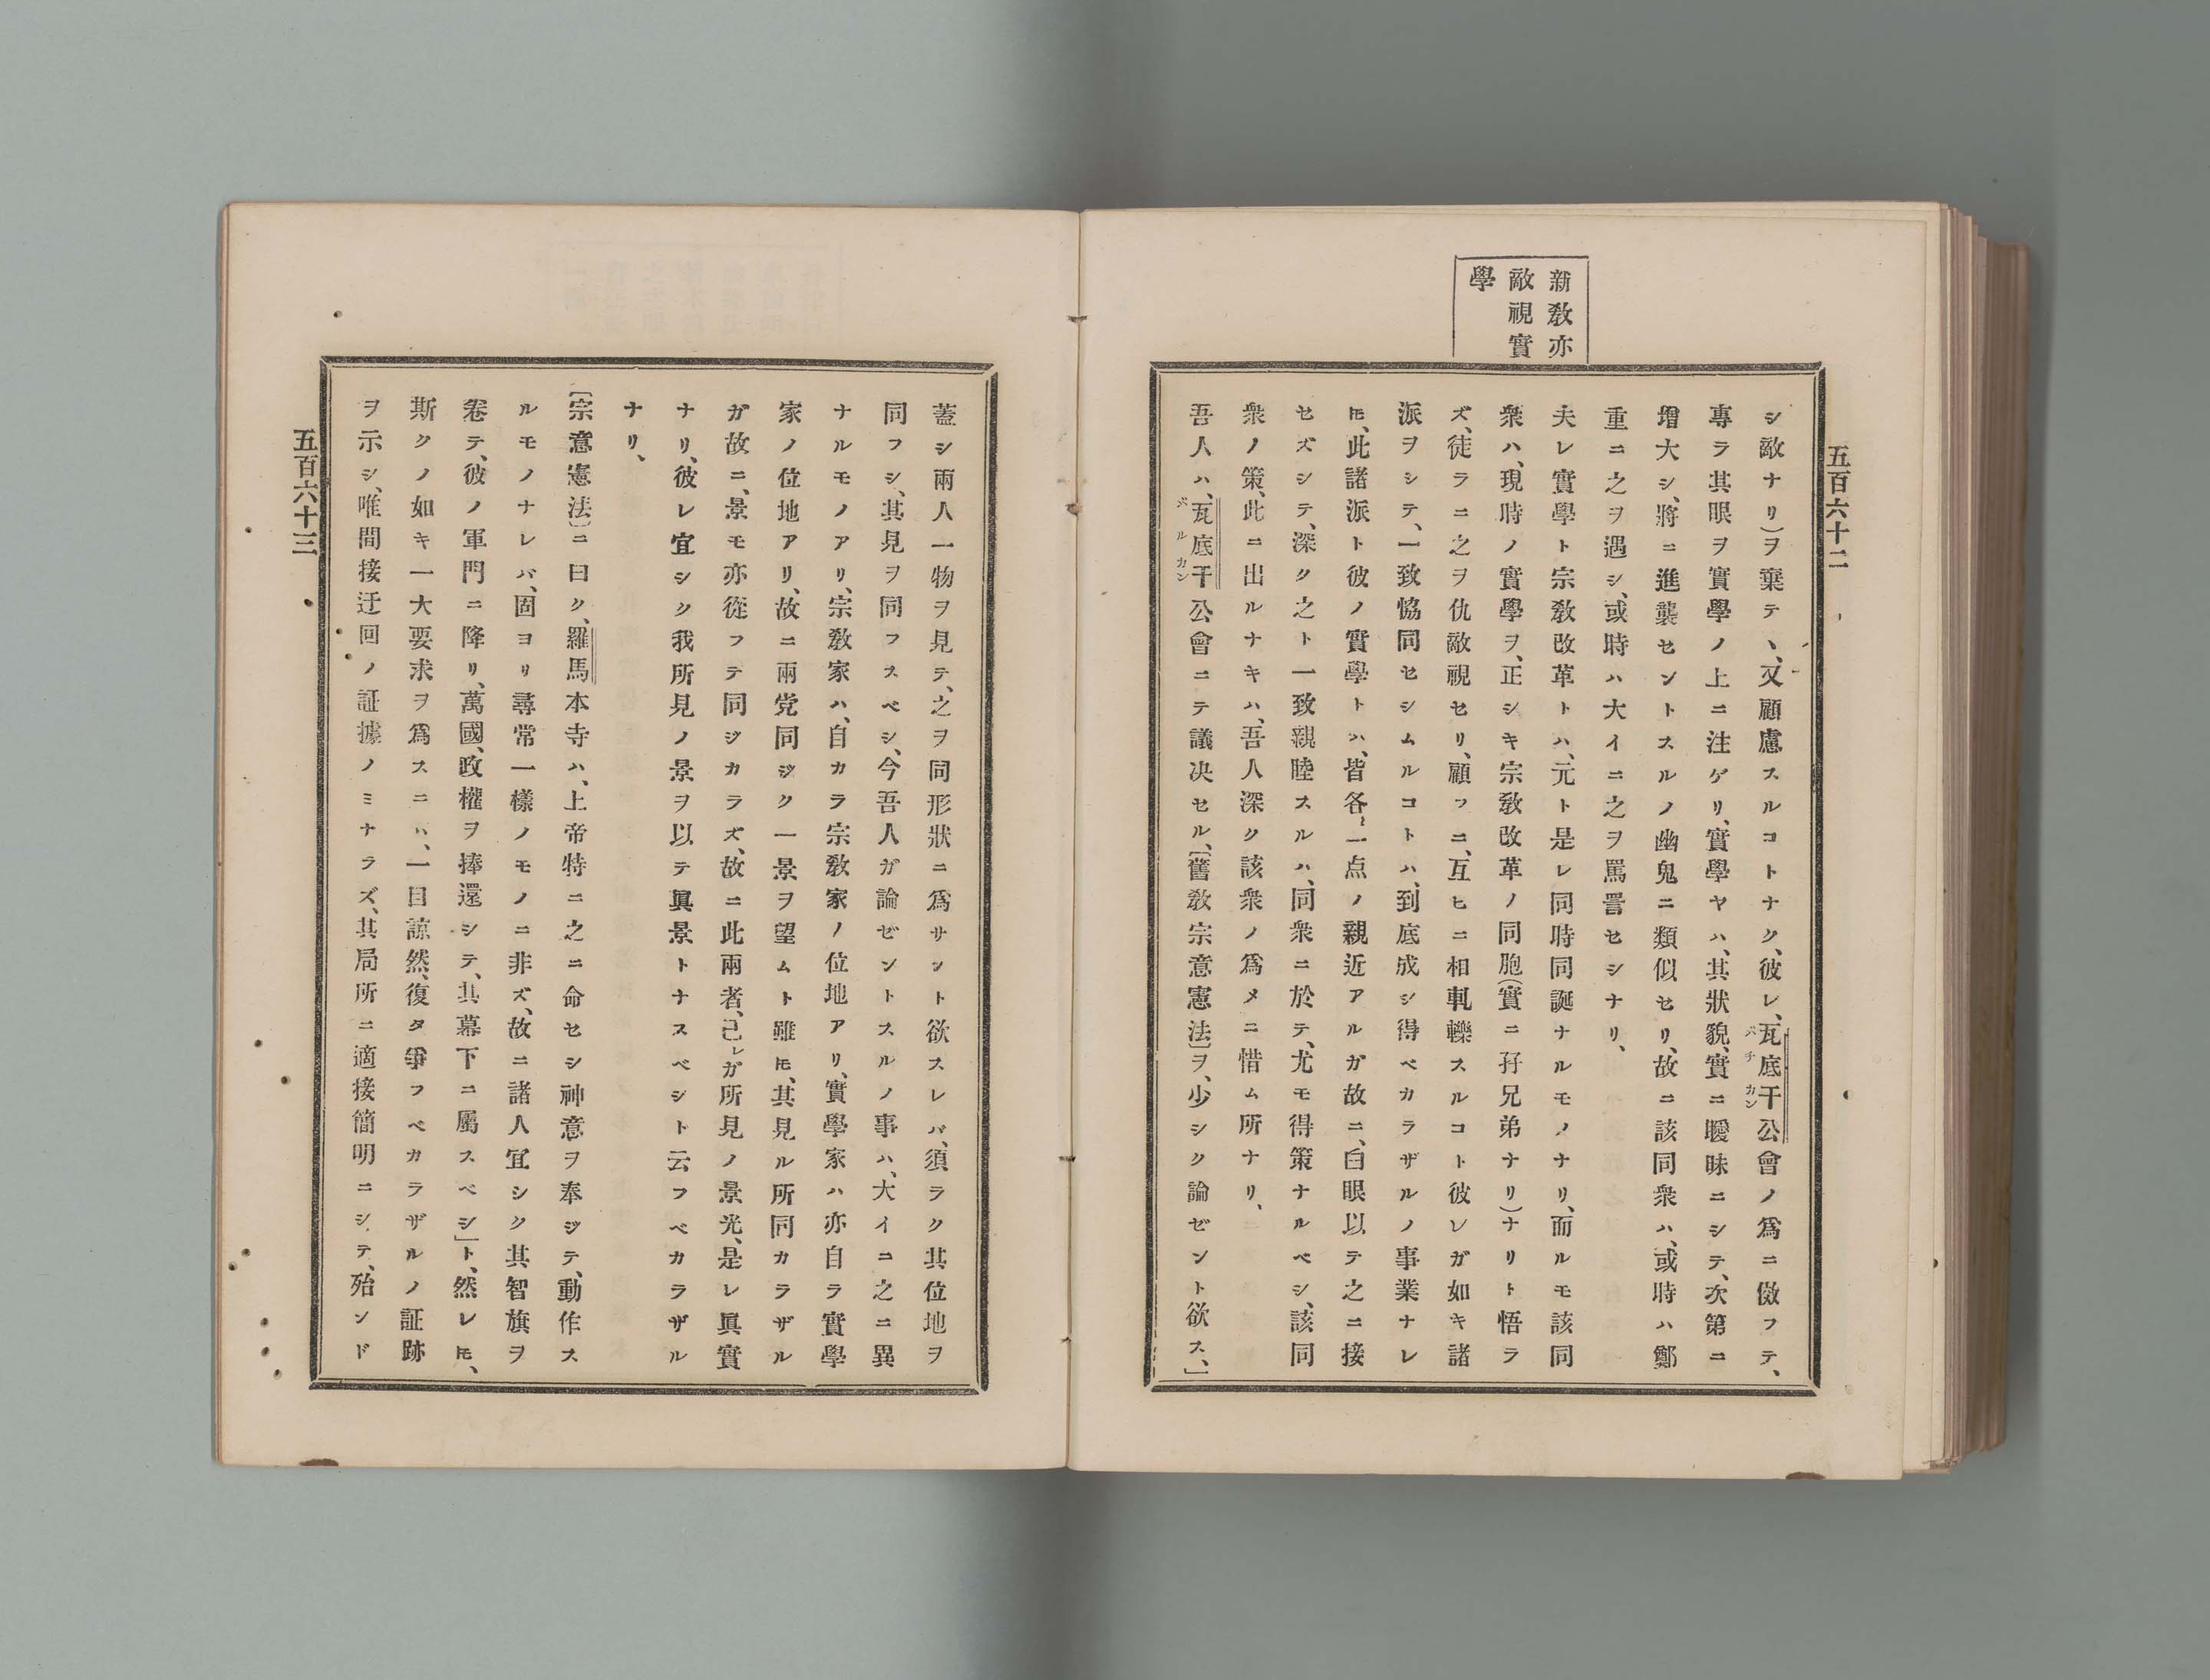 五百六十二
新敎亦
敵視實
學
シ敵ナリ)ヲ棄テヽ、又顧慮スルコトナク、彼レ、瓦底干公會ノ爲ニ倣フテ、
專ラ其眼ヲ實學ノ上ニ注ゲリ、實學ヤハ、其狀貌、實ニ曖昧ニシテ、次第ニ
增大シ、將ニ進襲セントスルノ幽鬼ニ類似セリ、故ニ該同衆ハ、或時ハ鄭
重ニ之ヲ遇シ、或時ハ大イニ之ヲ罵詈セシナリ、
夫レ實學ト宗敎改革トハ、元ト是レ同時同誕ナルモノナリ、而ルモ該同
衆ハ、現時ノ實學ヲ、正シキ宗敎改革ノ同胞(實ニ孖兄弟ナリ)ナリト悟ラ
ズ、徒ラニ之ヲ仇敵視セリ、顧フニ、互ヒニ相軋轢スルコト彼レガ如キ諸
派ヲシテ、一致恊同セシムルコトハ、到底成シ得ベカラザルノ事業ナレ
𪜈、此諸派ト彼ノ實學トハ、皆各〻一点ノ親近アルガ故ニ、白眼以テ之ニ接
セズシテ、深ク之ト一致親睦スルハ、同衆ニ於テ、尤モ得策ナルベシ、該同
衆ノ策、此ニ出ルナキハ、吾人深ク該衆ノ爲メニ惜ム所ナリ、
吾人ハ、瓦底干公會ニテ議决セル、[舊敎宗意憲法]ヲ、少シク論ゼント欲ス、」
蓋シ兩人一物ヲ見テ、之ヲ同形狀ニ爲サント欲スレバ、須ラク其位地ヲ
同フシ、其見ヲ同フスベシ、今吾人ガ論ゼントスルノ事ハ、大イニ之ニ異
ナルモノアリ、宗敎家ハ、自カラ宗敎家ノ位地アリ、實學家ハ亦自ラ實學
家ノ位地アリ、故ニ兩党同ジク一景ヲ望ムト雖𪜈、其見ル所同カラザル
ガ故ニ、景モ亦從フテ同ジカラズ、故ニ此兩者、己レガ所見ノ景光、是レ眞實
ナリ、彼レ宜シク我所見ノ景ヲ以テ眞景トナスベシト云フベカラザル
ナリ、
[宗意憲法]ニ曰ク、羅馬本寺ハ、上帝特ニ之ニ命セシ神意ヲ奉ジテ、動作ス
ルモノナレバ、固ヨリ尋常一樣ノモノニ非ズ、故ニ諸人宜シク其智旗ヲ
卷テ、彼ノ軍門ニ降リ、萬國、政權ヲ捧還シテ、其幕下ニ屬スベシ」ト、然レ𪜈、
斯クノ如キ一大要求ヲ爲スニハ、一目諒然、復タ爭フベカラザルノ証跡
ヲ示シ、唯間接迂回ノ証據ノミナラズ、其局所ニ適接簡明ニシテ、殆ンド
五百六十三